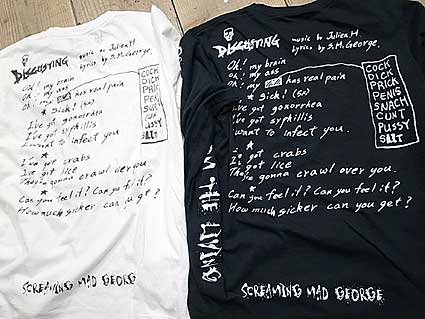 DISGUSTING
music by Julien.H.
Lyrics by S.M.George.
Oh! my brain
Oh! my ass
Oh! my has real pain
★ Sick! (5x)
I've got gonorrhea
I've got syphillis
I want to infect you
★
I've got crabs
I've got lice
They're gonna crawl over you.
★
Can you feel it? Can you feel it?
How much sicker can you get?
COCK
DICK
PRICK
PENIS
CUNT
PUSSY
SLIT
SCREAMING MAD GEORGE
DISGUSTING
music by Julien.H.
Lyrics by S.M.George.
Oh! my brain
Oh! my ass
Oh! my has real pain
★ Sick! (5x)
I've got gonorrhea
I've got syphillis
I want to infect you.
★
I've got crabs
I've got lice
They're gonna crawl over you.
★
Can you feel it? Can you feel it?
How much sicker can you get?
COCK
DICK
PRICK
PENIS
SNACH
CUNT
PUSSY
SLIT
SCREAMING MAD GEORGE